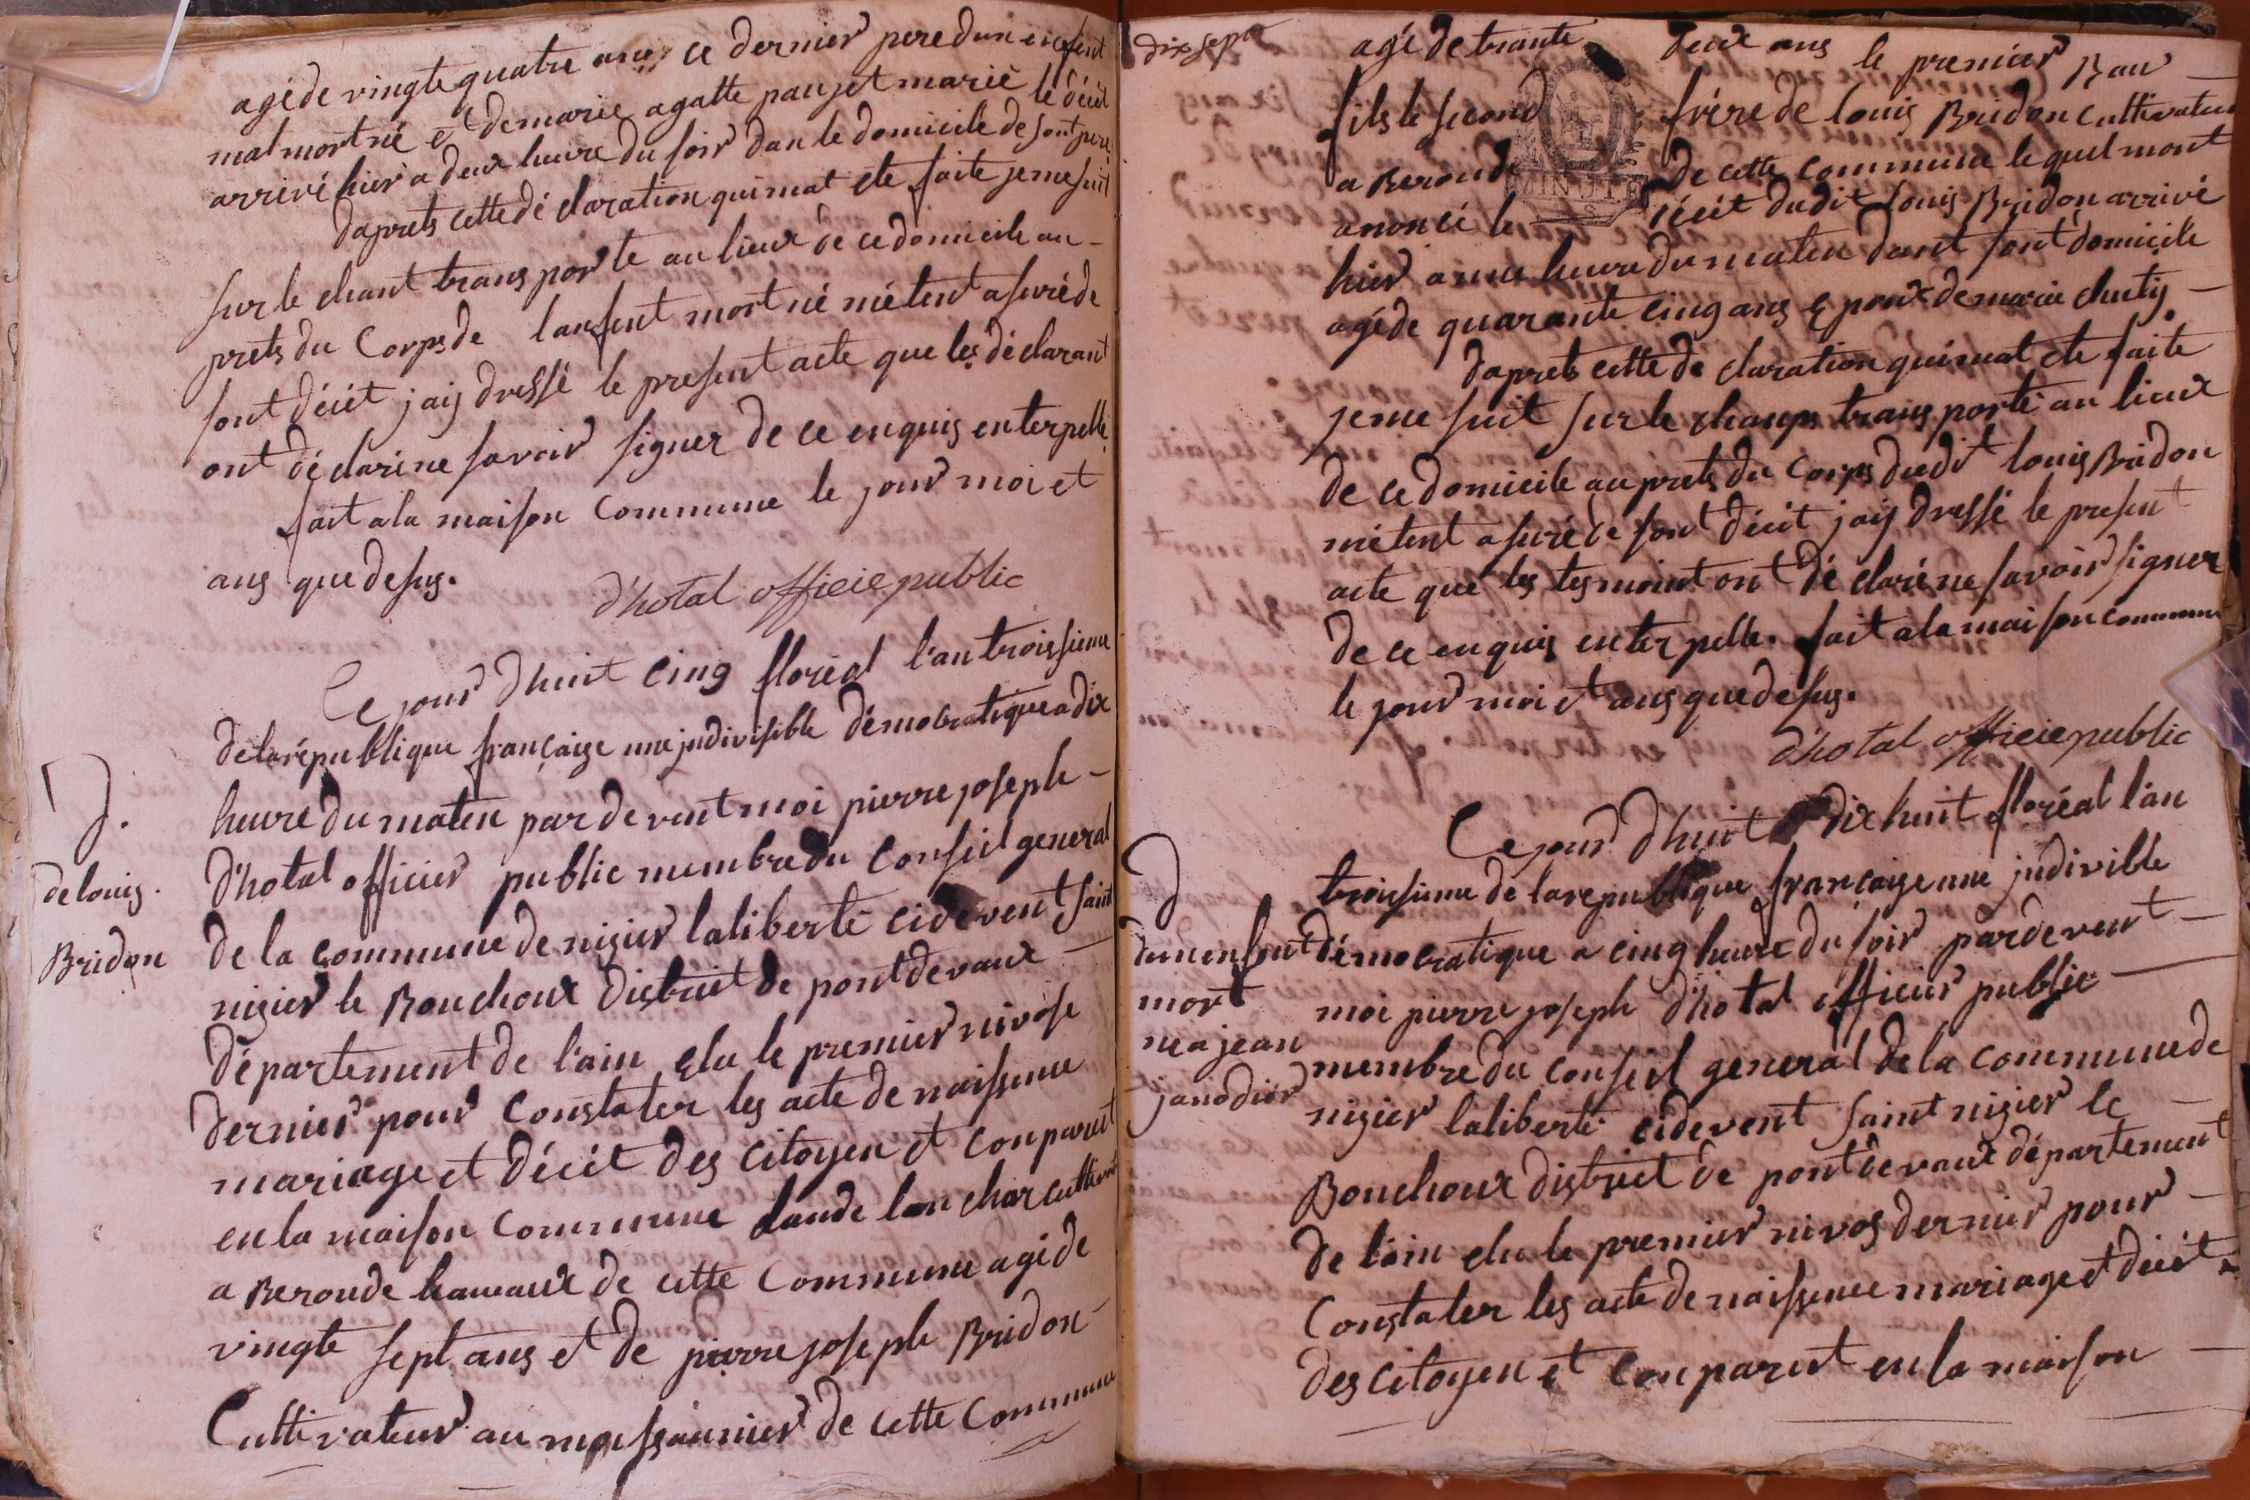 agé de vingte quatre ans ce dernier pere dun enfent
mal mort né et de marie agatte paujet marie le décet
arrivé hier a deux heure du soir dan le domicile de sont pere
daprets cette dé claration qui mat ete faite je me suit
sur le chant trans porte au lieux de ce domicile au
prets du Corps de lanfent mort né métent asuré de
sont décet jaij dressé le present acte que les déclarant
ont dé claré ne savoir signer de ce enquis enterpelle
fait a la maison Commune le jour moi et
ans que desus.
d'hotal officie public
Ce jour dhuit cinq floréal l'an troissieme
de la république françaize une jndivisible démocratique a dix
heure du maten par devent moi pierre joseph
d'hotal officier public membre du Conseil general
de la commune de nizier laliberté cidevent saint
nizier le Bouchoux District de pont de vaux
département de l'ain elu le premier nivose
dernier pour Constater les acte de naissence
mariage et décet des Citoyen et Conparut
en la maison Commune claude lonchar cultivat
a Beronde hameaux de cette Commune agé de
vingte sept ans et de pierre joseph Bridon
Cultivateur au de cette Commune
D.
de louis.
Bridon
dix sept
agé de trante deux ans le premier Bau
fils le second frére de louis Bridon cultivateur
a Beronde de cette commune lequel mont
anoncé le décet dudit louis Bridon arrivé
hier a une heure du maten dant sont domicile
agé de quarante cinq ans epoux de marie
daprets cette dé claration qui mat ete faite
je me suit sur le champs trans porté au lieux
de ce domicile au prets du Corps dudit louis Bridon
métent asuré de sont décet jaij dressé le present
acte que les tesmoint ont dé claré ne savoir signer
de ce enquis enterpelle. fait a la maison commune
le jour moi et ans que desus.
d'hotal officie public
Ce jour dhuit dix huit floréal l'an
troissieme de la republique françaize une jndivible
démocratique a cinq heure du soir par devent
moi pierre joseph d'hotal officier public
membre du conseil general de la commune de
nizier laliberté cidevent saint nizier le
Bouchoux district de pont de vaux département
de l'ain elu le premier nivos dernier pour
Constater les acte de naissence mariage et décet
des Citoyen et Conparut en la maison
D
dun enfent
mort
ne a jean
janodier